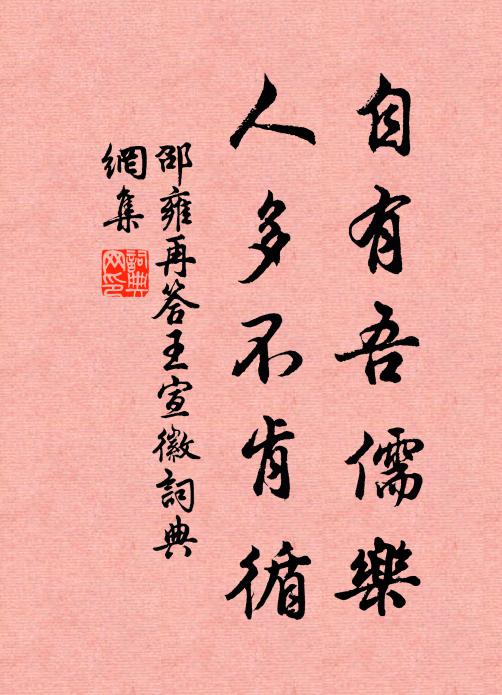 自有吾儒樂
人多不肯循
邵雍再答王宣徽詞典
網集
詞典
网印